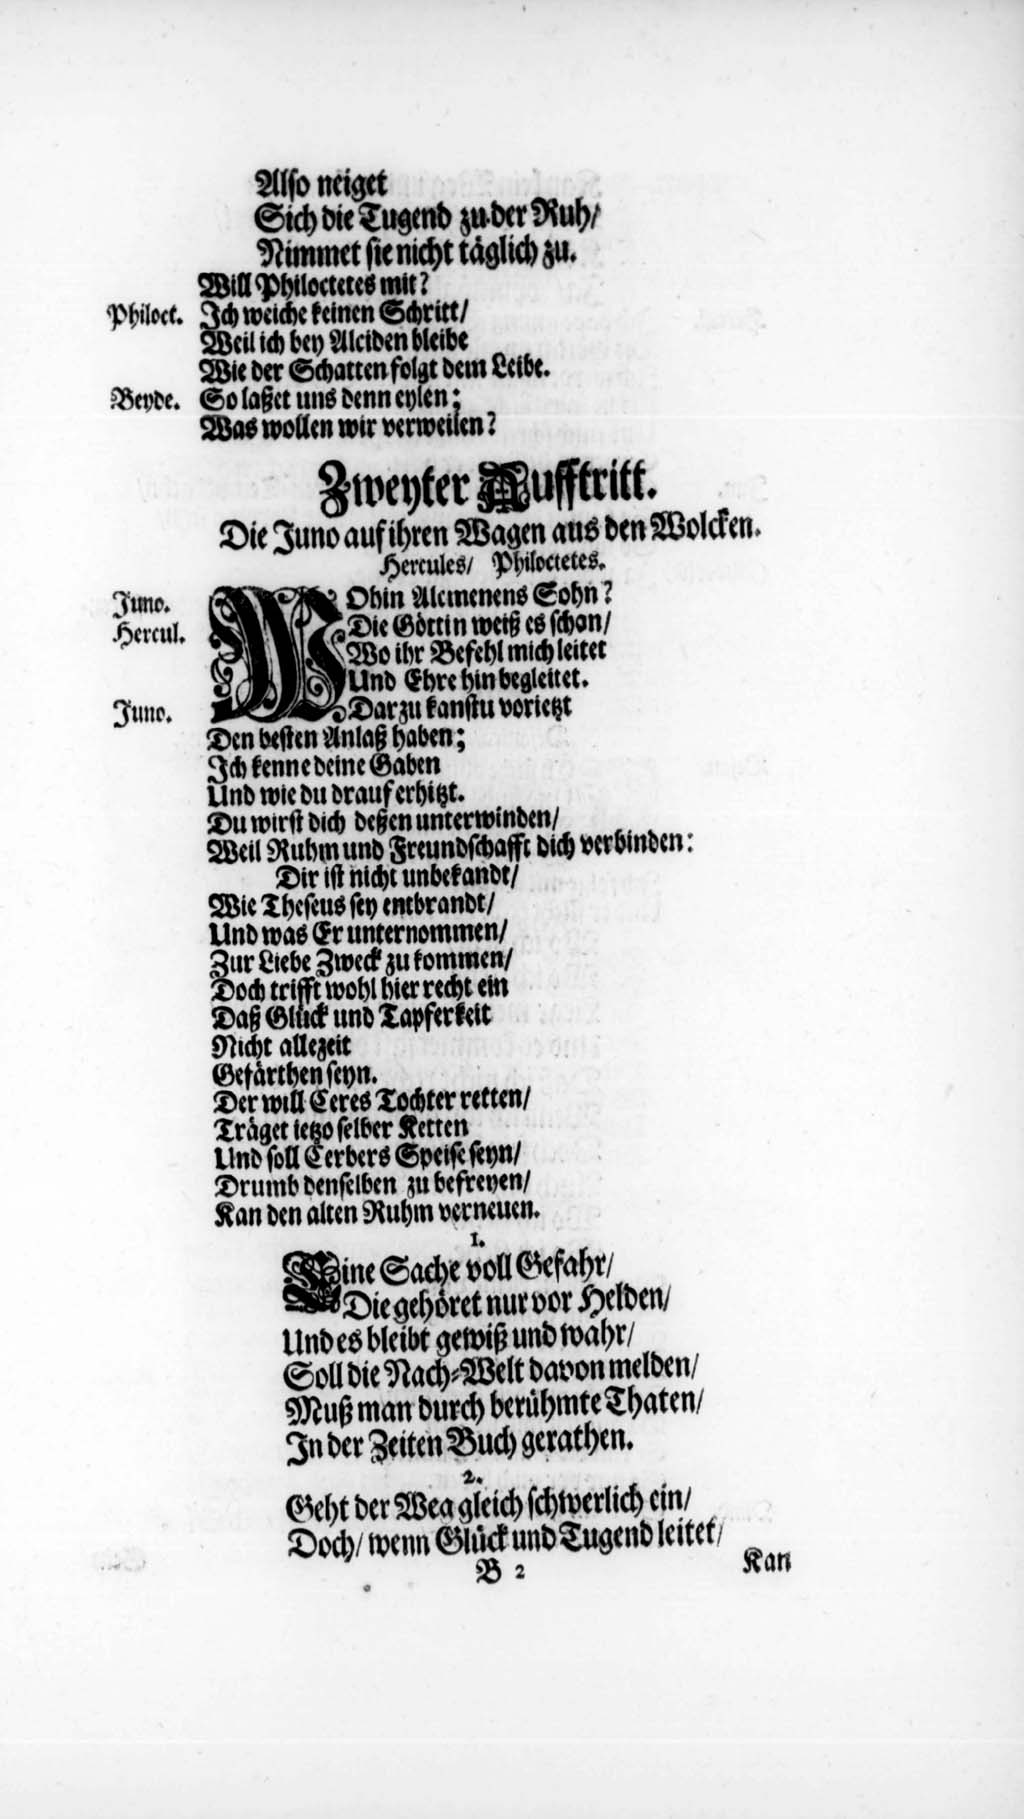 Also neiget
Sich die Tugend zu der Ruh/
Nimmet sie nicht täglich zu.
Will Philoctetes mit?
Philoct. Ich weiche keinen Schritt/
Weil ich bey Alciden bleibe
Wie der Schatten folgt dem Leibe.
Beyde. So laßet uns denn eylen;
Was wollen wir verweilen?
Zweyter Aufftritt.
Die Juno auf ihren Wagen aus den Wolcken.
Hercules/ Philoctetes.
Juno. WOhin Alcmenens Sohn?
Hercul. Die Göttin weiß es schon/
Wo ihr Befehl mich leitet
Und Ehre hin begleitet.
Juno. Darzu kanstu vorietzt
Den besten Anlaß haben;
Ich kenne deine Gaben
Und wie du drauf erhitzt.
Du wirst dich deßen unterwinden/
Weil Ruhm und Freundschafft dich verbinden:
Dir ist nicht unbekandt/
Wie Theseus sey entbrandt/
Und was Er unternommen/
Zur Liebe Zweck zu kommen/
Doch trifft wohl hier recht ein
Daß Glück und Tapferkeit
Nicht allezeit
Gefärthen seyn.
Der will Ceres Tochter retten/
Träget ietzo selber Ketten
Und soll Cerbers Speise seyn/
Drumb denselben zu befreyen/
Kan den alten Ruhm verneuen.
1.
Eine Sache voll Gefahr/
Die gehöret nur vor Helden/
Und es bleibt gewiß und wahr/
Soll die Nach-Welt davon melden/
Muß man durch berühmte Thaten/
In der Zeiten Buch gerathen.
2.
Geht der Weg gleich schwerlich ein/
Doch/ wenn Glück und Tugend leitet/
B 2 Kan